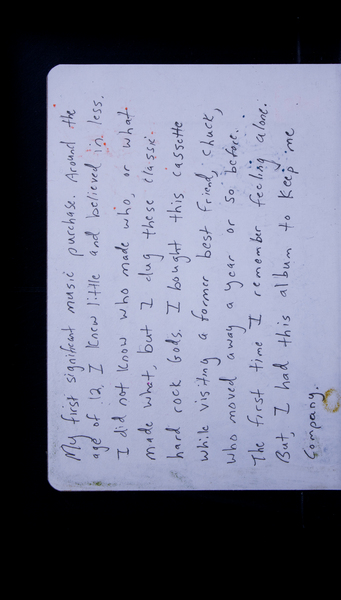 My first significant music purchase. Around the
age of 12, I knew little and believed in less.
I did not know who made who, or what
made what, but I dug these classic
hard rock Gods. I bought this cassette
while visiting a former best friend, Chuck,
who moved away a year or so before.
The first time I remember feeling alone.
But, I had this album to keep me
company.